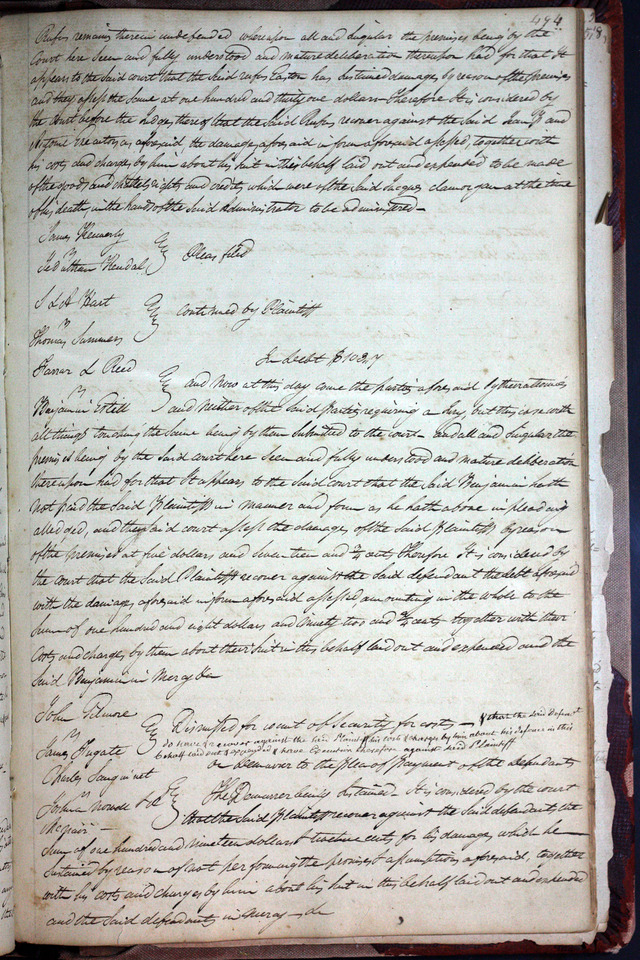 494
Rufus remains therein undefended whereupon all and singular the premises being by the
Court here Seen and fully understood and mature deliberation thereupon had for that It
appears to the Said court that the Said Rufus Easton has Sustained damages by reason of the premises
and they assess the Same at one hundred and thirty one dollars Therefore It is considered by
the Court before the Judges thereof that the Said Rufus recover against the Said and
as aforesaid the damages aforesaid in form aforesaid assessed, together with
his costs and charges by him about his Suit in this behalf laid out and expended to be made
of the goods and chattels rights and credits which were of the Said Jacques Clamorgan at the time
of his death, in the hands of the Said Administrator to be administered —
James Kennerly
vs
Kendal
Pleas filed
S & A Hart
vs
Thomas Summers
continued by Plaintiff
In debt $103.
Farrar & Reed
vs
Benjamin Estill
and now at this day come the parties aforesaid by their attornies
and neither of the Said parties requiring a Jury but this cause with
all things touching the Same being by them Submitted to the court and all and Singular the
premises being by the Said court here Seen and fully understood and mature deliberation
thereupon had for that It appears to the Said Court that the Said Benjamin hath
not paid the Said Plaintiffs in manner and form as he hath above in pleading
alledged, and the Said court assess the damages of the Said Plaintiffs by reason
of the premises at five dollars and Seventeen and cents, Therefore it is considered by
the court that the Said Plaintiffs recover against the Said defendant the debt aforesaid
with the damages aforesaid in form aforesaid assessed amounting in the whole to the
Sum of one hundred and eight dollars and ninety two and cents together with their
Costs and charges by them about their Suit in this behalf laid out and expended and the
Said Benjamin in Mercy &c
John Filmore
vs
James Fugate
Dismissed for want of Security for costs — & that the Said Defendt
do have & recover against the Said Plaintiff his costs & charges by him about his defence in this
behalf laid out & expended & have Execution therefore against Said Plaintiff
Charles Sanguinet
vs
Joshua Norvell &
McNair —
On Demurrer to the plea of payment of the Defendants
The Demurrer being Sustained It is considered by the court
that the Said Plaintiff recover against the Said defendants the
Sum of one hundred and nineteen dollars twelve cents for his damages which he
Sustained by reason of not performing the promises & assumptions aforesaid, together
with his costs and charges by him about his Suit in this behalf laid out and expended
and the Said defendants in Mercy — &c